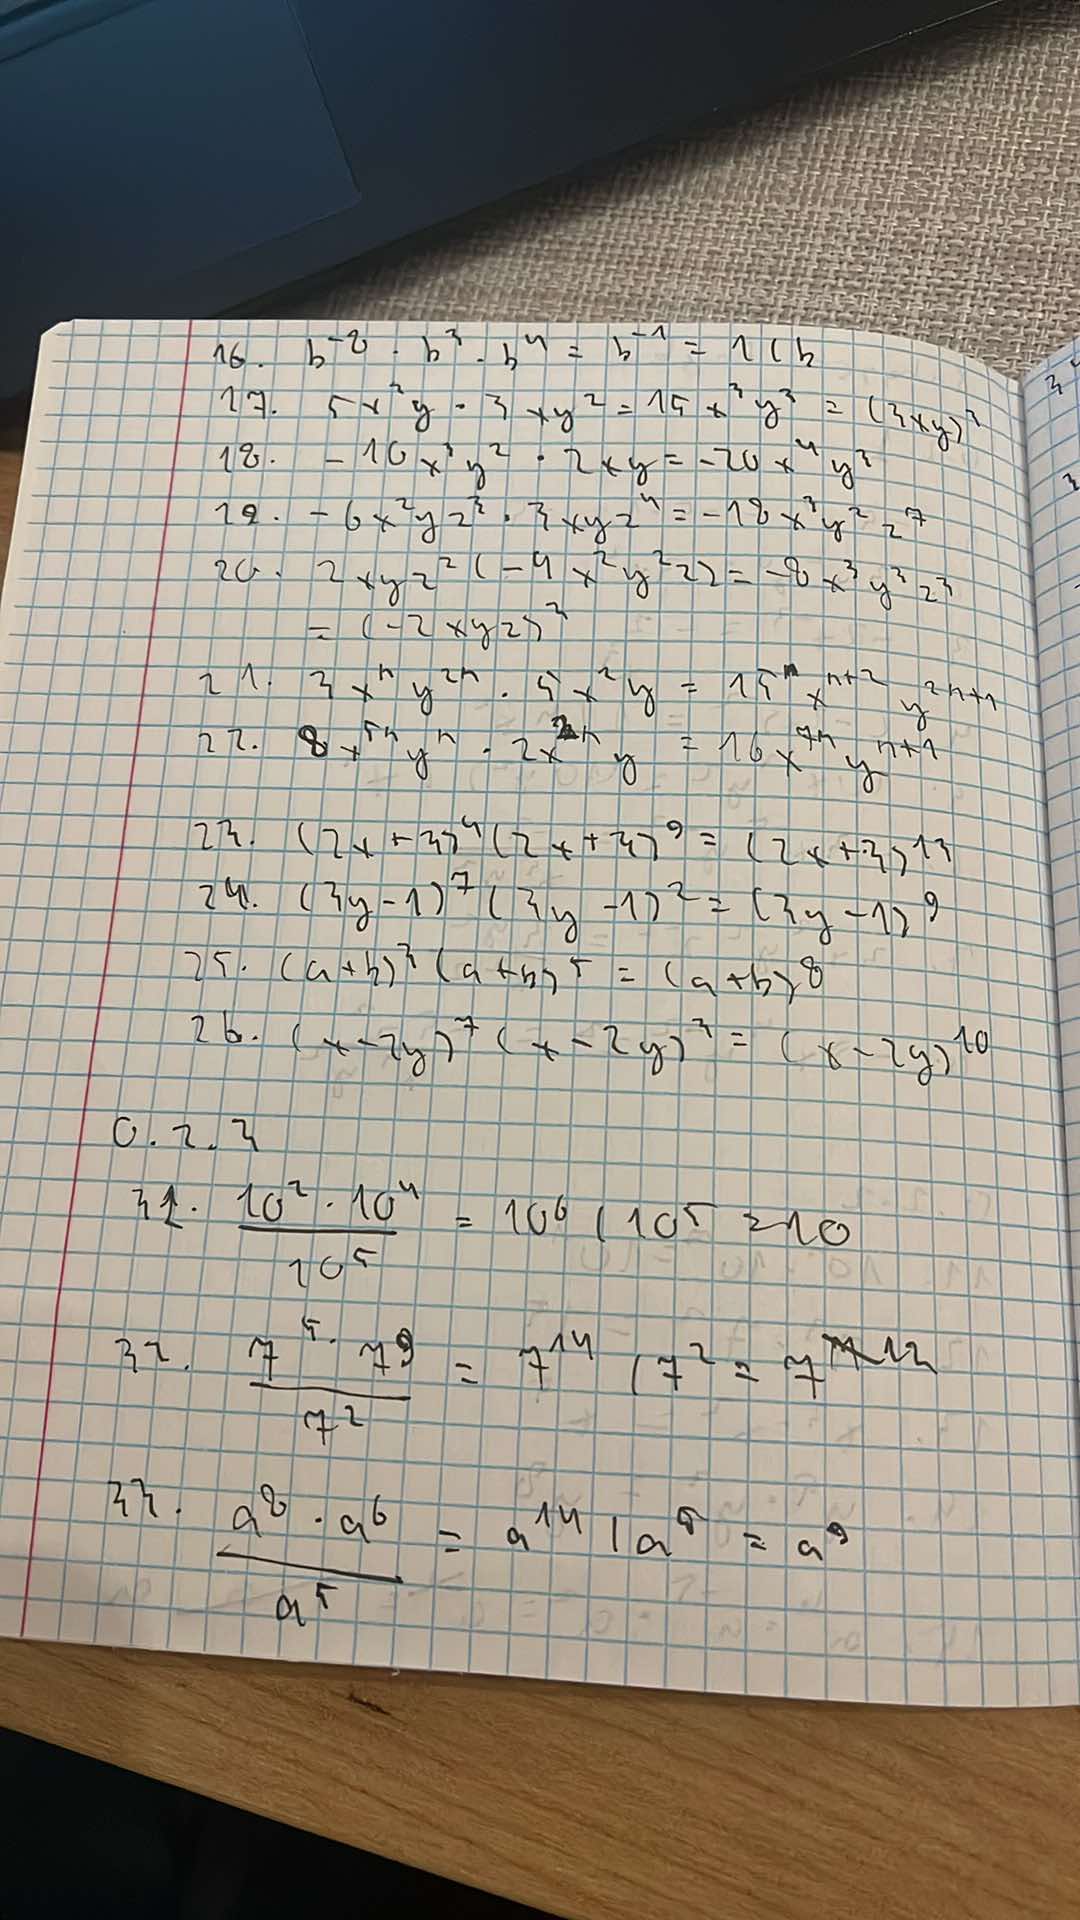 16. b⁻⁸ · b³ · b⁴ = b⁻¹ = 1 / b
17. 5x²y · 3xy² = 15x³y³ = (3xy)³
18. -10x³y² · 2xy = -20x⁴y³
19. -6x²yz³ · 3xyz⁴ = -18x³y²z⁷
20. 2xyz² (-4x²y²z) = -8x³y³z³
= (-2xyz)³
21. 3xⁿy²ⁿ · 5x²y = 15 xⁿ⁺²y²ⁿ⁺¹
22. 8x⁵ⁿyⁿ · 2x²ⁿy = 16x⁷ⁿyⁿ⁺¹
23. (2x+3)⁴(2x+3)⁹ = (2x+3)¹³
24. (3y-1)⁷(3y-1)² = (3y-1)⁹
25. (a+b)³(a+b)⁵ = (a+b)⁸
26. (x-2y)⁷(x-2y)³ = (x-2y)¹⁰
0.2.3
31. 10² · 10⁴ / 10⁵ = 10⁶ / 10⁵ = 10
32. 7⁵ · 7⁹ / 7² = 7¹⁴ / 7² = 7¹²
33. a⁸ · a⁶ / a⁵ = a¹⁴ / a⁵ = a⁹